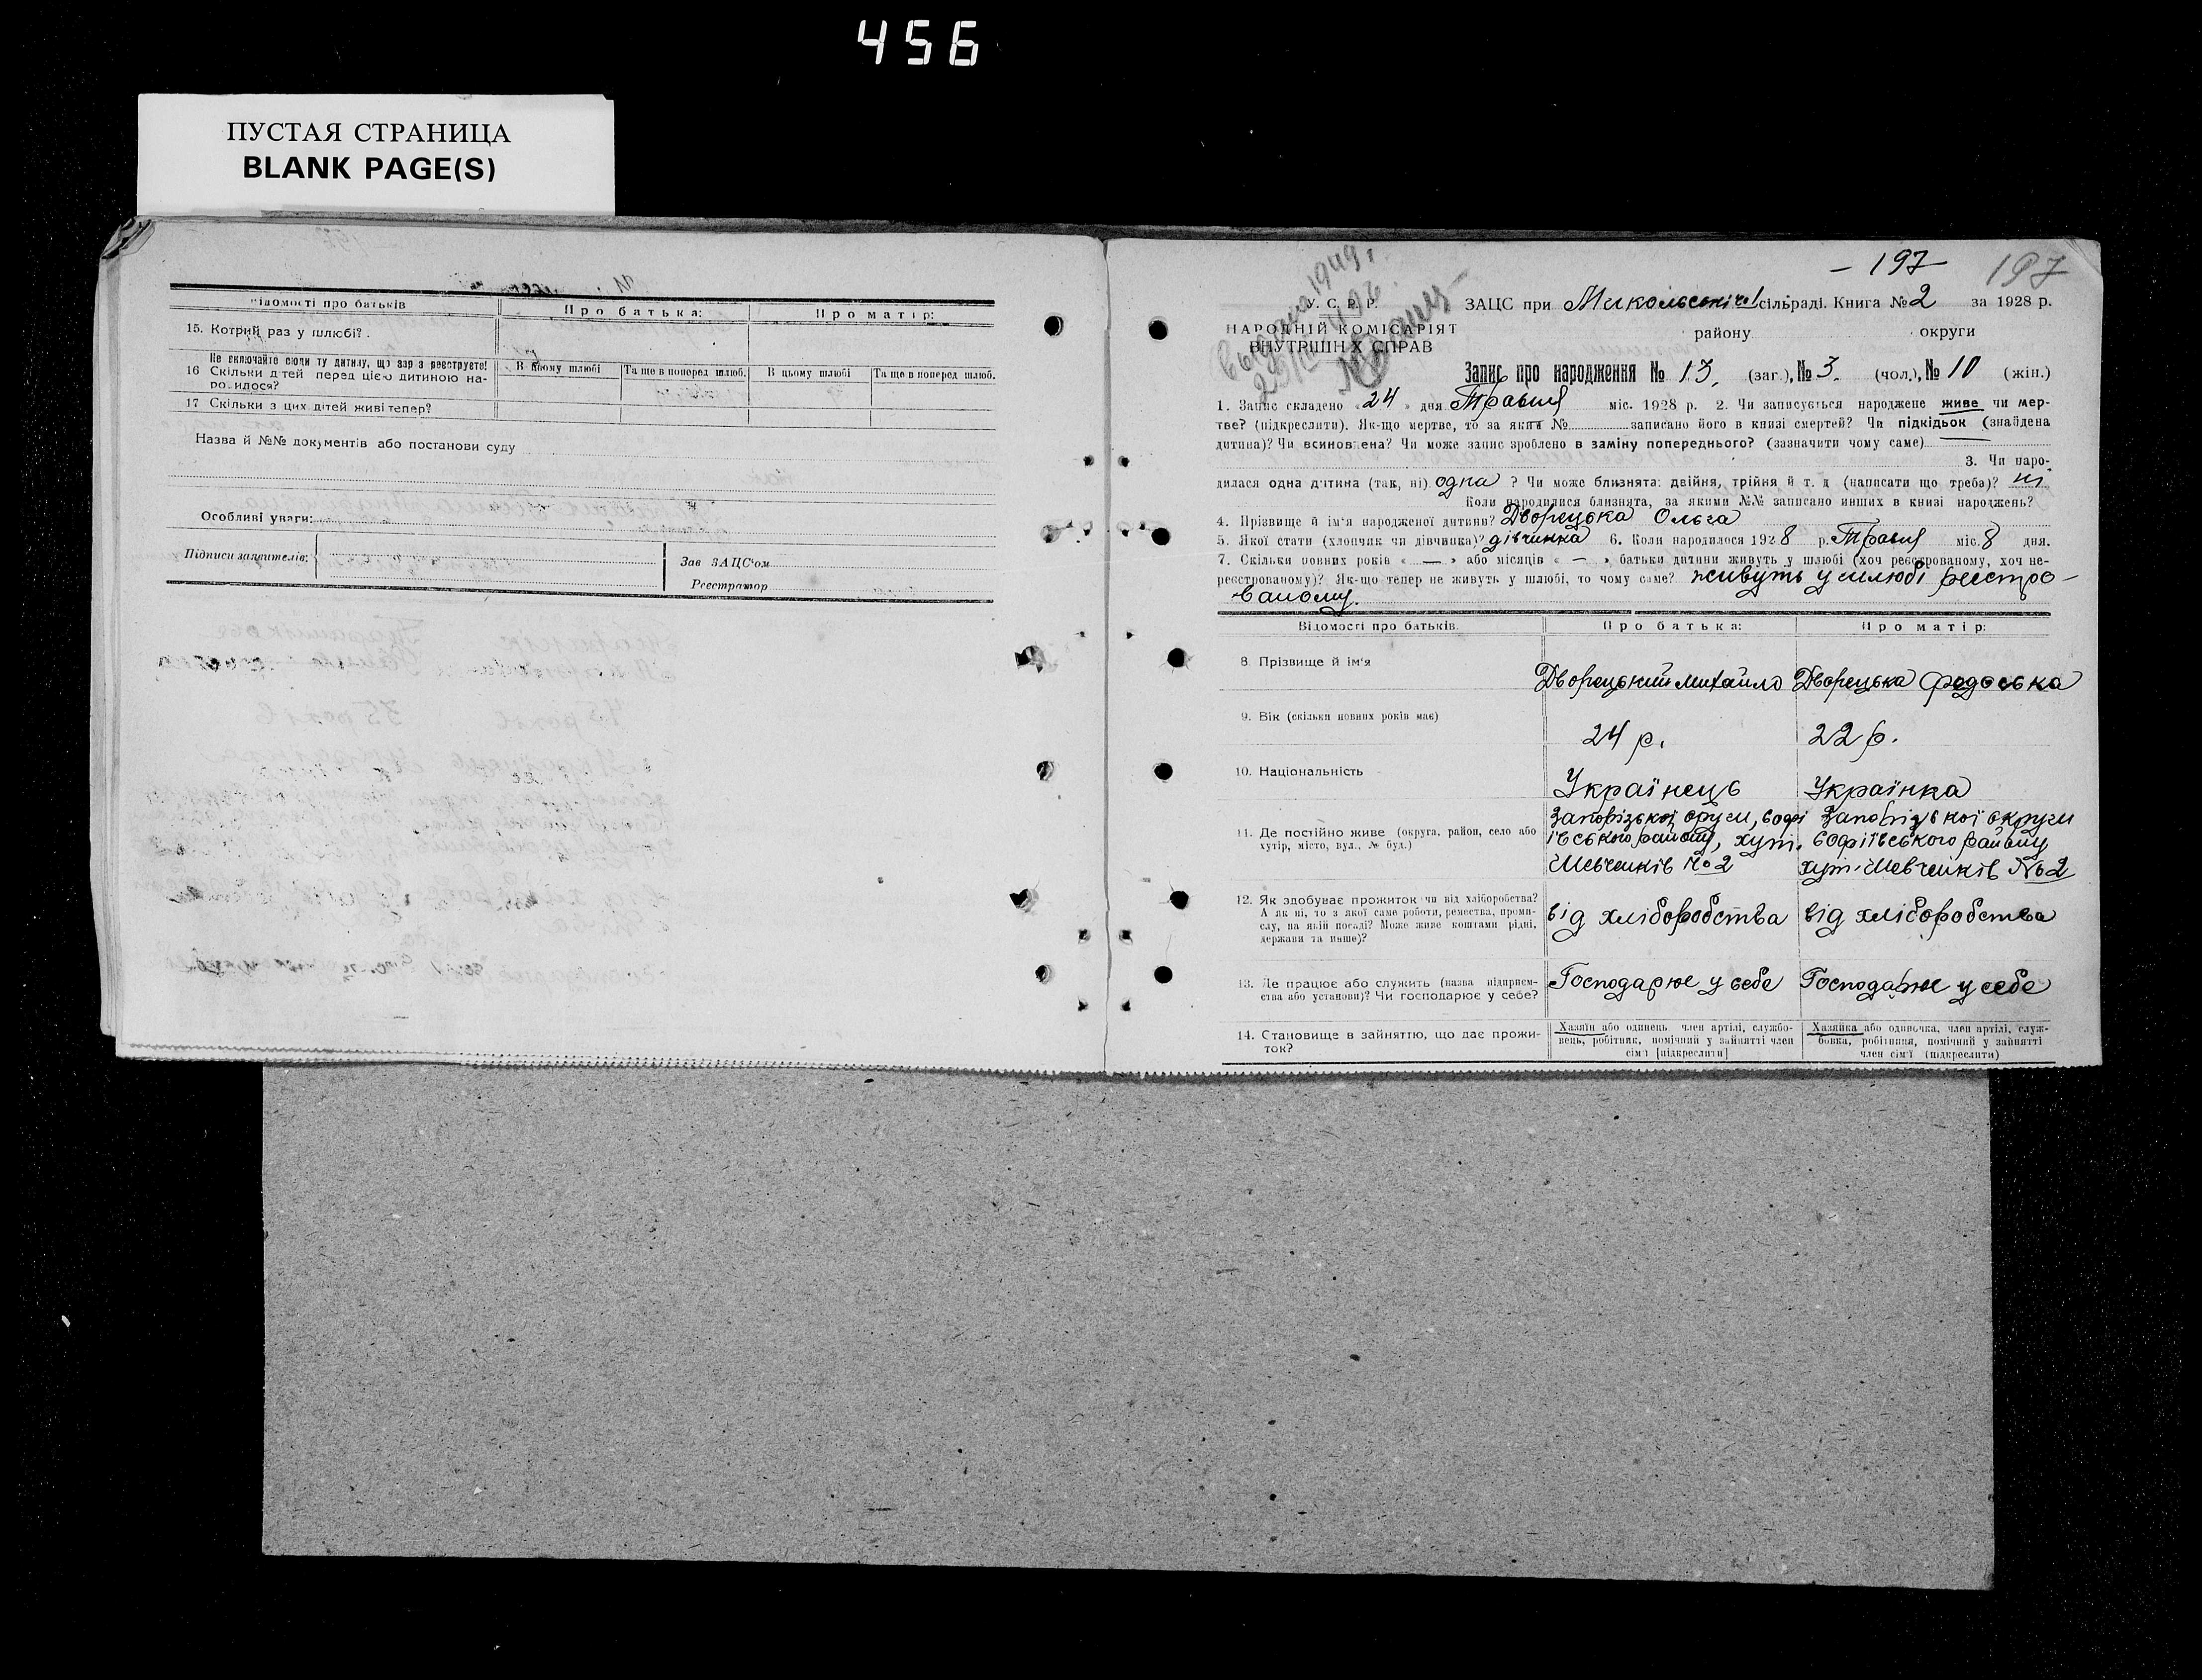 456
ПУСТАЯ СТРАНИЦА
BLANK PAGE(S)
Відомості про батьків
Про батька:
Про матір:
15. Котрий раз у шлюбі?
Не включайте сюди ту дитину, що зараз реєструєте!
16 Скільки дітей перед цією дитиною на-
родилося?
В цьому шлюбі
Та ще в поперед шлюб.
В цьому шлюбі
Та ще в поперед шлюб.
17 Скільки з цих дітей живі тепер?
Назва й №№ документів або постанови суду
Особливі уваги:
Підписи заявителів:
Зав ЗАЦС'ом
Реєстратор
- 197 - 197
1949 г.
У. С. Р. Р.
НАРОДНІЙ КОМІСАРІЯТ
ВНУТРІШНІХ СПРАВ
ЗАЦС при Микольській сільраді. Книга № 2 за 1928 р.
району округи
Запис про народження № 13. (заг.), № 3. (чол.), № 10 (жін.)
1. Запис складено « 24 » дня Травня міс. 1928 р. 2. Чи записується народжене живе чи мер-
тве? (підкреслити). Як-що мертве, то за яким № записано його в книзі смертей? Чи підкідьок (знайдена
дитина)? Чи всиновлена? Чи може запис зроблено в заміну попереднього? (зазначити чому саме)
3. Чи наро-
дилася одна дитина (так, ні) одна ? Чи може близнята: двійня, трійня й т. д (написати що треба)? ні
Коли народилися близнята, за якими №№ записано инших в книзі народжень?
4. Прізвище й ім'я народженої дитини? Дворецька Ольга
5. Якої стати (хлопчик чи дівчинка)? дівчинка 6. Коли народилося 1928 р. Травня міс. 8 дня.
7. Скільки повних років « — » або місяців « — » батьки дитини живуть у шлюбі (хоч реєстрованому, хоч не-
реєстрованому)? Як-що тепер не живуть у шлюбі, то чому саме? живуть у шлюбі реєстро-
ваному.
Відомості про батьків.
Про батька:
Про матір:
8. Прізвище й ім'я
Дворецький Михайло
Дворецька Федоська
9. Вік (скільки повних років має)
24 р.
22 р.
10. Національність
Українець
Українка
11. Де постійно живе (округа, район, село або
хутір, місто, вул., № буд.)
Запорізької округи, Софі
ївського району, хут.
Шевченків №2
Запорізької округи
Софіївського району
хут. Шевченків №2
12. Як здобуває прожиток чи від хліборобства?
А як ні, то з якої саме роботи, ремества, проми-
слу, на якій посаді? Може живе коштами рідні,
держави та инше)?
від хліборобства
від хліборобства
13. Де працює або служить (назва підприєм-
ства або установи)? Чи господарює у себе?
Господарює у себе
Господарює у себе
14. Становище в зайняттю, що дає прожи-
ток?
Хазяїн або одинець член артілі, службо-
вець, робітник, помічний у зайнятті член
сім'ї [підкреслити]
Хазяйка або одиначка, член артілі, служ-
бовка, робітниця, помічний у зайнятті
член сім'ї (підкреслити)